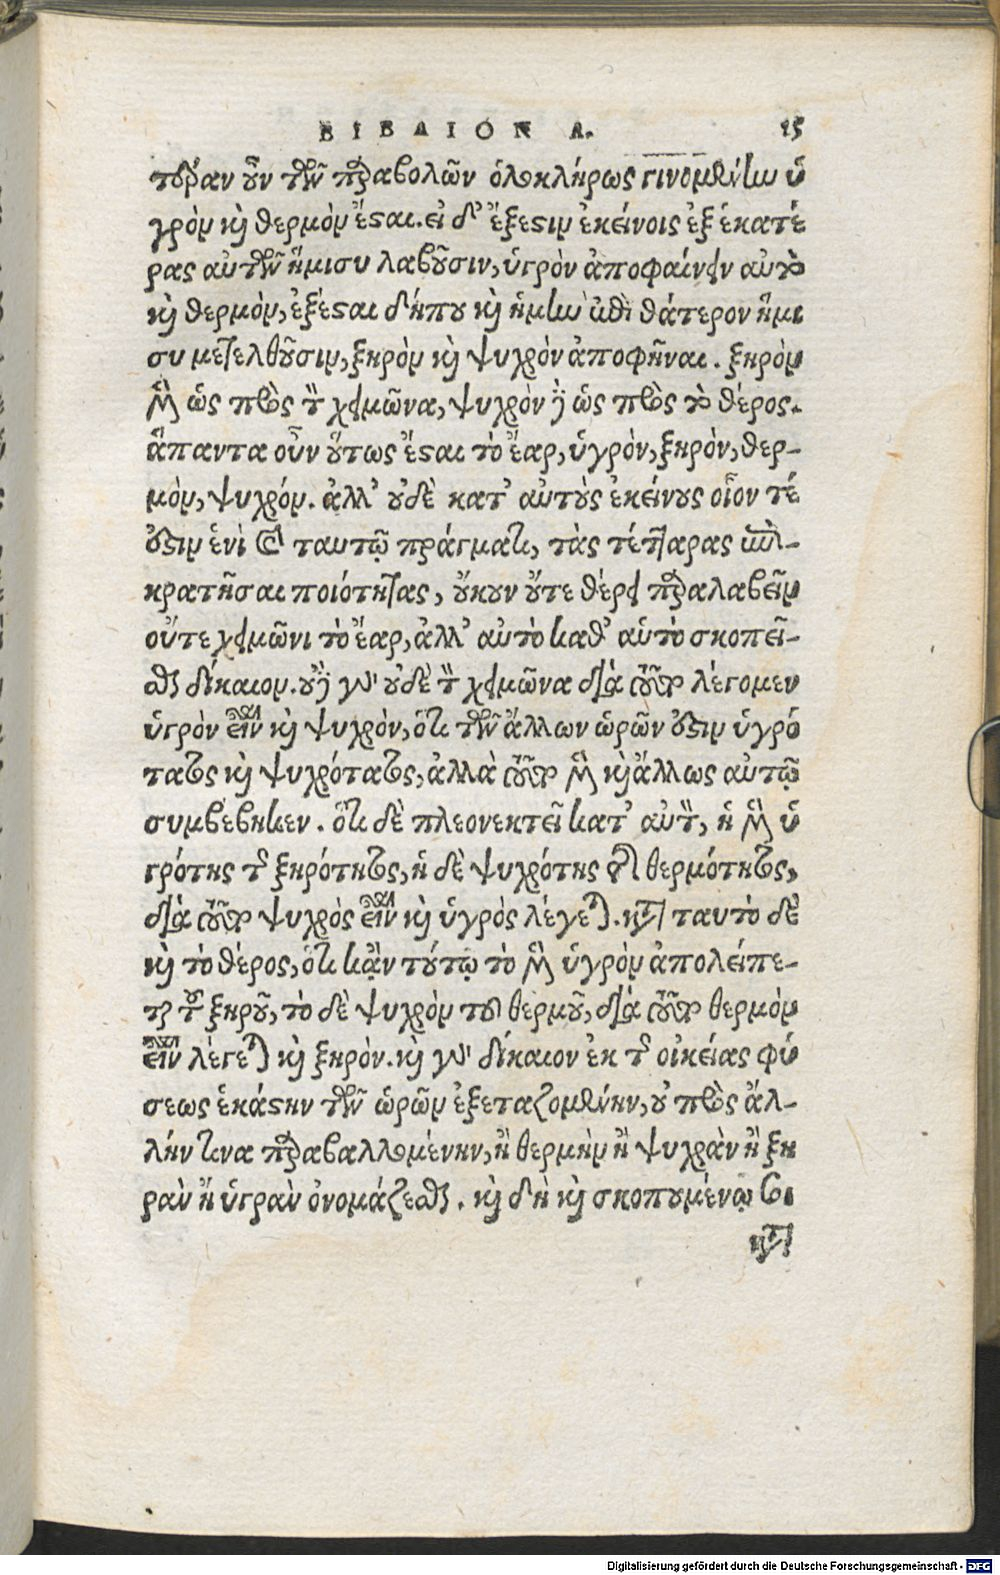 ΒΙΒΛΙΟΝ Α. 15
τέραν οὖν τῶν παραβολῶν ὁλοκλήρως γινομένην ὑ
γρὸν καὶ θερμὸν ἔσται. εἰ δ' ἔξεστιν ἐκείνοις ἐξ ἑκατέ
ρας αὐτῶν ἥμισυ λαβοῦσιν, ὑγρὸν ἀποφαίνειν αὐτὸ
καὶ θερμὸν, ἐξέσται δήπου καὶ ἡμῖν ἐπὶ θάτερον ἥμι
συ μετελθοῦσιν, ξηρὸν καὶ ψυχρὸν ἀποφῆναι. ξηρὸν
μὲν ὡς πρὸς τὸν χειμῶνα, ψυχρὸν δὲ ὡς πρὸς τὸ θέρος.
ἅπαντα οὖν οὕτως ἔσται τὸ ἔαρ, ὑγρὸν, ξηρὸν, θερ-
μὸν, ψυχρόν. ἀλλ' οὐδὲ κατ' αὐτοὺς ἐκείνους οἷον τέ
ἐστιν ἑνὶ καὶ ταυτῷ πράγματι, τὰς τέτταρας ἐπι-
κρατῆσαι ποιότητας, οὔκουν οὔτε θέρει παραλαβεῖν
οὔτε χειμῶνι τὸ ἔαρ, ἀλλ' αὐτὸ καθ' αὑτὸ σκοπεῖ-
σθαι δίκαιον. οὐδὲ γὰρ οὐδὲ τὸν χειμῶνα διὰ τοῦτο λέγομεν
ὑγρὸν εἶναι καὶ ψυχρὸν, ὅτι τῶν ἄλλων ὡρῶν ἐστιν ὑγρό
τατος καὶ ψυχρότατος, ἀλλὰ τοῦτο μὲν καὶ ἄλλως αὐτῷ
συμβέβηκεν. ὅτι δὲ πλεονεκτεῖ κατ' αὐτὸν, ἡ μὲν ὑ
γρότης τῆς ξηρότητος, ἡ δὲ ψυχρότης τῆς θερμότητος,
διὰ τοῦτο ψυχρὸς εἶναι καὶ ὑγρὸς λέγεται. κατὰ ταυτὸ δὲ
καὶ τὸ θέρος, ὅτι κᾀν τούτῳ τὸ μὲν ὑγρὸν ἀπολείπε-
ται τοῦ ξηροῦ, τὸ δὲ ψυχρὸν τοῦ θερμοῦ, διὰ τοῦτο θερμὸν
εἶναι λέγεται καὶ ξηρόν. καὶ γὰρ δίκαιον ἐκ τῆς οἰκείας φύ
σεως ἑκάστην τῶν ὡρῶν ἐξεταζομένην, οὐ πρὸς ἄλ-
λην τινα παραβαλλομένην, ἢ θερμὴν ἢ ψυχρὰν ἢ ξη
ρὰν ἢ ὑγρὰν ὀνομάζεσθαι. καὶ δὴ καὶ σκοπουμένῳ σοι
κατὰ